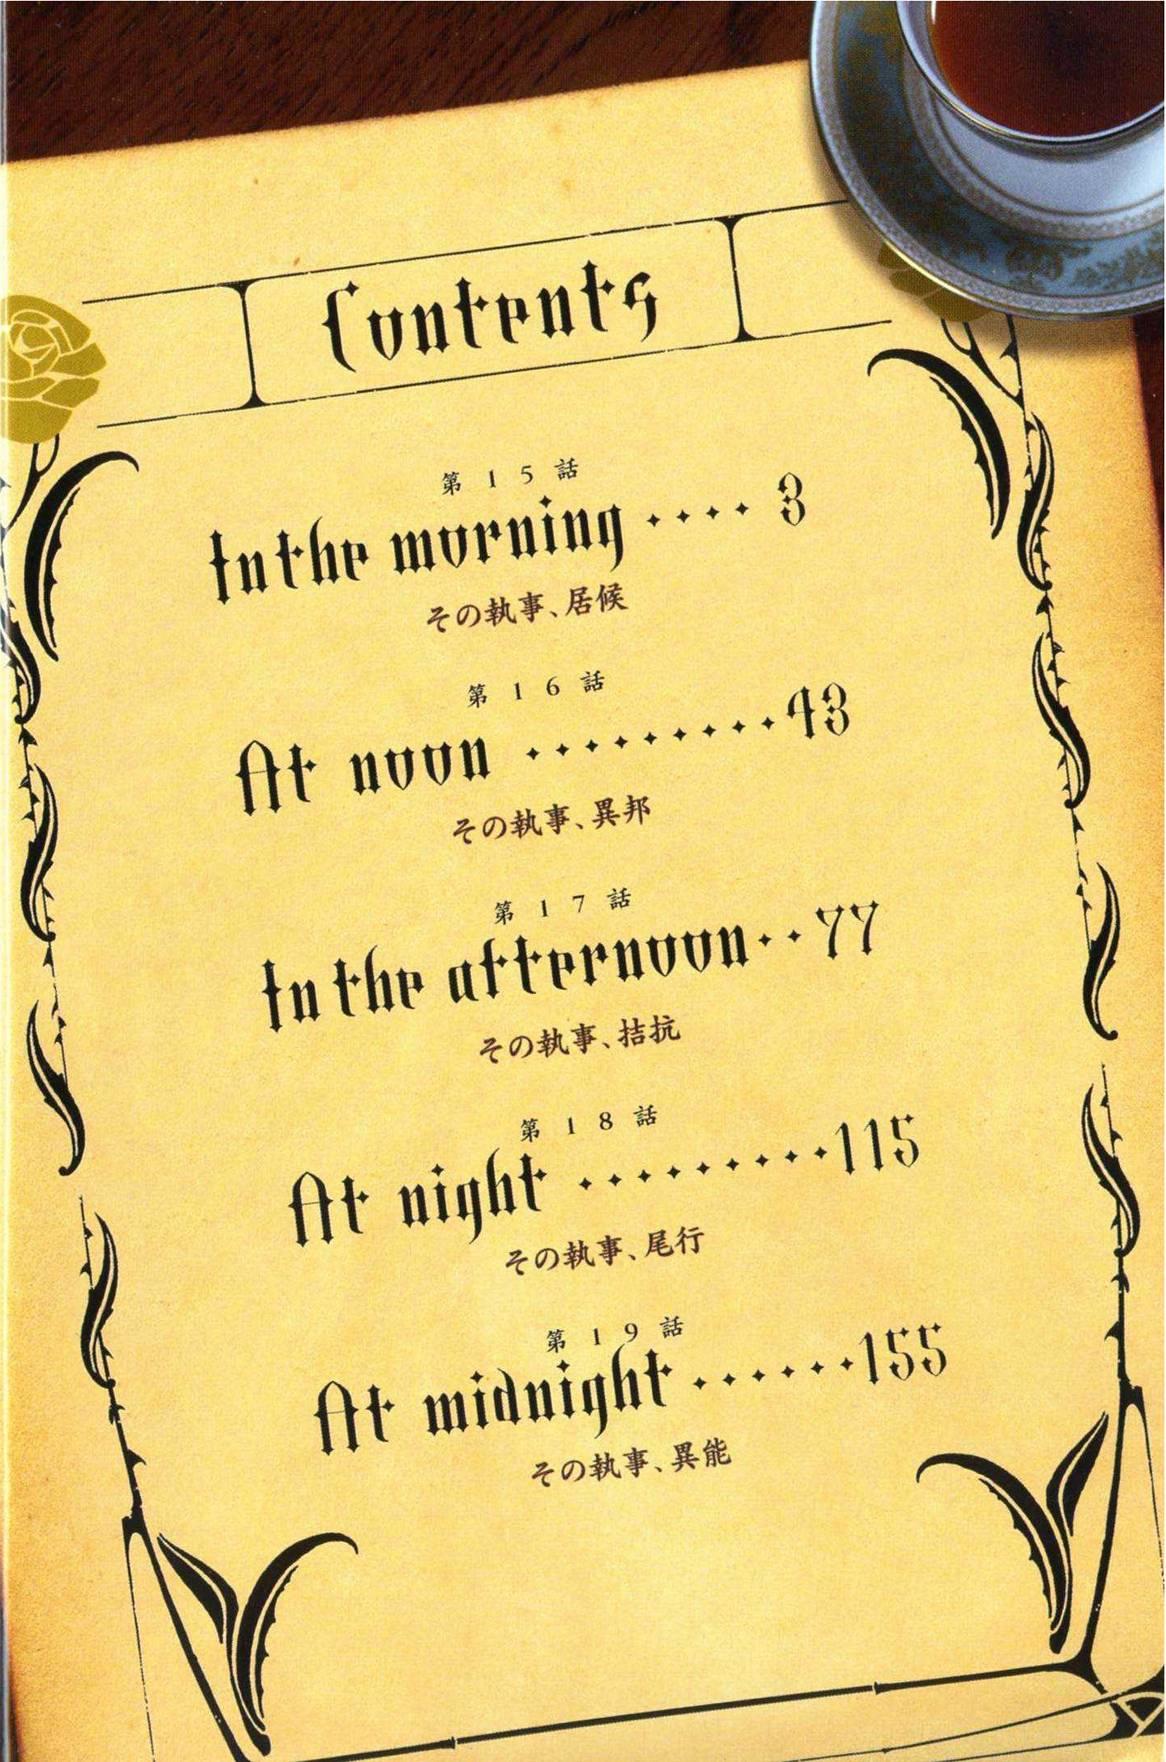 Contents
第15話
In the morning ････ 3
その執事、居候
第16話
At noon ･････････43
その執事、異邦
第17話
In the afternoon･･77
その執事、拮抗
第18話
At night ･････････115
その執事、尾行
第19話
At midnight ･･････155
その執事、異能